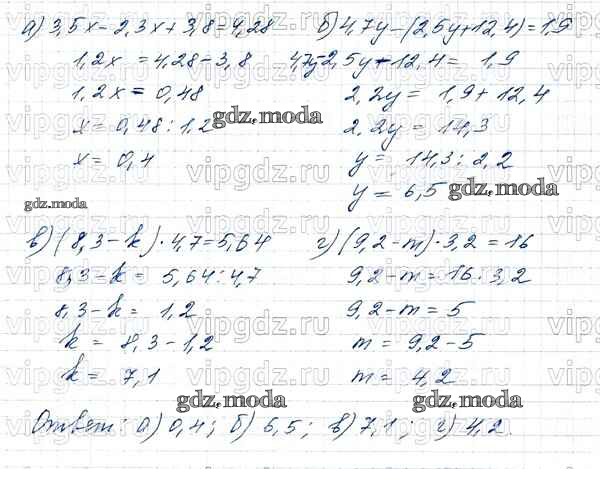 а) 3,5x - 2,3x + 3,8 = 4,28
1,2x = 4,28 - 3,8
1,2x = 0,48
x = 0,48 : 1,2
x = 0,4
б) 4,7y - (2,5y + 12,4) = 1,9
4,7y - 2,5y - 12,4 = 1,9
2,2y = 1,9 + 12,4
2,2y = 14,3
y = 14,3 : 2,2
y = 6,5
в) (8,3 - k) · 4,7 = 5,64
8,3 - k = 5,64 : 4,7
8,3 - k = 1,2
k = 8,3 - 1,2
k = 7,1
г) (9,2 - m) · 3,2 = 16
9,2 - m = 16 : 3,2
9,2 - m = 5
m = 9,2 - 5
m = 4,2
Ответ: а) 0,4; б) 6,5; в) 7,1; г) 4,2.
gdz.moda
gdz.moda
gdz.moda
gdz.moda
gdz.moda
vipgdz.ru